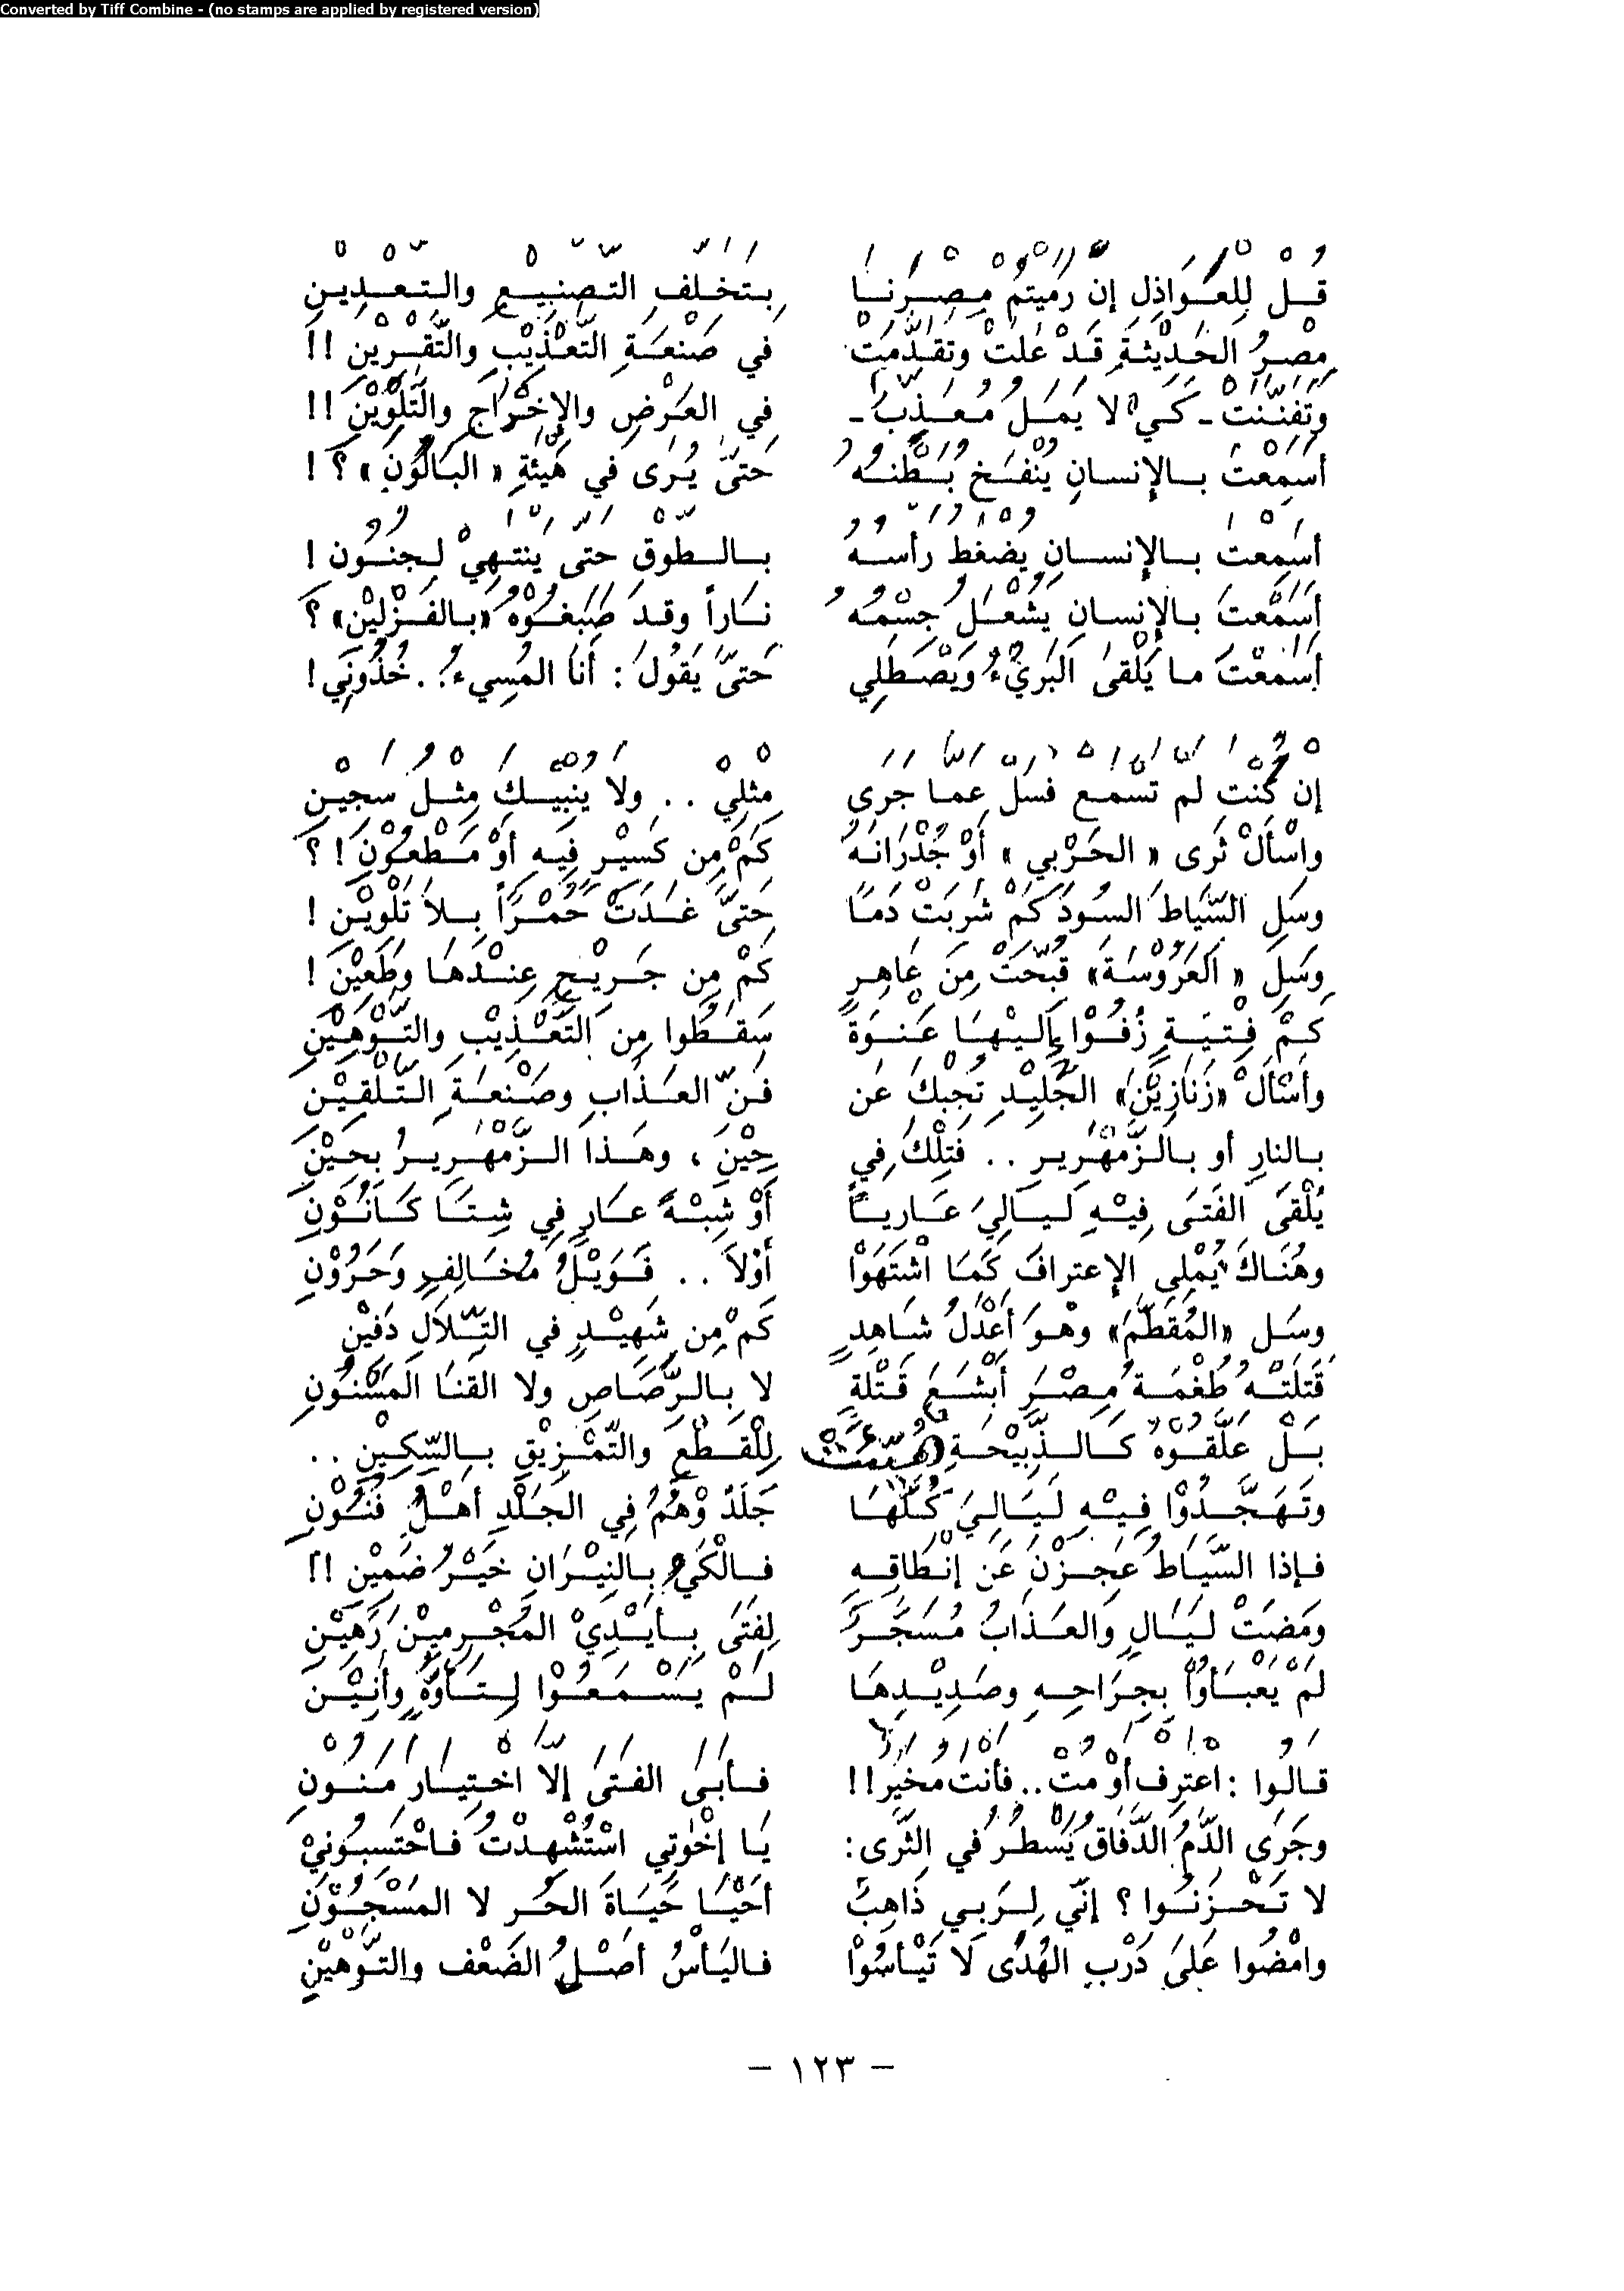 Converted by Tiff Combine - (no stamps are applied by registered version)
قُلْ لِلعَوَاذِلِ إنْ رَمَيتُمْ مِصْرَنا بِتَخَلُّفِ التَّصْنِيعِ والتَّعْدِينِ
مِصْرُ الحَدِيثَةِ قَدْ عَلَتْ وتَقَدَّمَتْ في صَنْعَةِ التَّعْذِيْبِ والتَّقْرِيْنِ !!
وتَفَنَّنَتْ ـ كَيْ لا يَمَلَّ مُعَذَّبٌ ـ في العَرْضِ والإِخْرَاجِ والتَّلْوِيْنِ !!
أَسَمِعْتَ بالإِنسانِ يُنْفَخُ بَطْنُهُ حَتَّى يُرَى في هَيْئَةِ « البَالُوْنِ » ؟ !
أَسَمِعْتَ بالإِنسانِ يُضْغَطُ رأْسُهُ بالطَّوْقِ حتَّى يَنتَهِيْ لِجُنُوْنِ !
أَسَمِعْتَ بالإِنسانِ يُشْعَلُ جِسْمُهُ نَاراً وقد صَبَغُوْهُ «بالفَزْلِيْنِ» ؟
أَسَمِعْتَ ما يَلْقَى البَرِيْءُ وَيَصْطَلِي حَتَّى يَقُولَ : أَنَا المُسِيءُ . . خُذُونِي !
إنْ كُنْتَ لَمْ تَسْمَعْ فَسَلْ عَمَّا جَرَى مِثْلِيْ . . ولا يُنْبِيْكَ مِثْلُ سَجِيْنِ
واسْأَلْ ثَرَى « الحَرْبِي » أَوْ جُدْرَانَهُ كَمْ مِن كَسِيْرٍ فِيهِ أَوْ مَطْعُوْنِ ! ؟
وسَلِ السِّيَاطَ السُّودَ كَمْ شَرِبَتْ دَمًا حَتَّى غَدَتْ حُمْرًا بِلاَ تَلْوِيْنِ !
وسَلِ « العَرُوْسَةَ» قُبِّحَتْ مِنَ عَاهِرٍ كَمْ مِن جَرِيْحٍ عِنْدَهَا وطَعِيْنِ !
كَمْ فِتْيَةٍ زُفُّوْا إِلَيْهَا عَنْوَةً سَقَطُوا مِنَ التَّعْذِيْبِ والتَّوْهِيْنِ
واسْأَلْ «زَنَازِيْنَ» الجَلِيْدِ تُجِبْكَ عَن فَنِّ العَذَابِ وصَنْعَةِ التَّلْقِيْنِ
بالنارِ أو بالزَّمْهَرِيرِ . . فَتِلْكَ في حِيْنٍ ، وهَذا الزَّمْهَرِيرُ بِحِيْنِ
يُلْقَى الفَتَى فِيْهِ لَيَالِيَ عَارِياً أَوْ شِبْهَ عَارٍ في شِتَا كَانُوْنِ
وهُنَاكَ يُمْلِي الإعترافَ كَمَا اشْتَهَوْا أَوْلاَ . . فَوَيْلُ مُخَالِفٍ وَحَرُوْنِ
وسَل «المُقَطَّمَ» وهْوَ أَعْدَلُ شَاهِدٍ كَمْ مِن شَهِيْدٍ في التِّلَالِ دَفِيْنِ
قَتَلَتْهُ طُغْمَةُ مِصْرَ أَبْشَعَ قَتْلَةٍ لا بالرَّصَاصِ ولا القَنَا المَسْنُونِ
بَلْ عَلَّقُوْهُ كَالذَّبِيْحَةِ هُيِّئَتْ لِلْقَطْعِ والتَّمْزِيْقِ بالسِّكِيْنِ . .
وتَهَجَّدُوْا فِيْهِ لَيَالِيَ كُلُّهَا جَلْدٌ وْهُمُ في الجَلْدِ أَهْلُ فُنُوْنِ
فإذا السِّيَاطُ عَجَزْنَ عَن إِنْطَاقِهِ فالْكَيُّ بِالنِيْرَانِ خَيْرُ ضَمِيْنِ !!
ومَضَتْ لَيَالٍ والعَذَابُ مُسَجَّرٌ لِفَتَى بِأَيْدِيْ المُجْرِمِيْنَ رَهِيْنِ
لَمْ يَعْبَأُوْا بِجِرَاحِهِ وصَدِيْدِهَا لَمْ يَسْمَعُوْا لِتَأَوُّهٍ وأَنِيْنِ
قالُوا : اعْتَرِفْ أَوْ مُتْ . . فأَنْتَ مُخَيَّرٌ !! فأَبَى الفَتَى إلاَّ اخْتِيَارَ مَنُونِ
وجَرَى الدَّمُ الدَّفَّاقُ يَسْطُرُ في الثَّرَى : يَا إِخْوَتِي اسْتُشْهِدْتُ فاحْتَسِبُونِيْ
لا تَحْزَنُوا ؟ إنِّي لِرَبِي ذَاهِبٌ أَحْيَا حَيَاةَ الحُرِ لا المَسْجُوْنِ
وامْضُوا عَلَى دَرْبِ الهُدَى لَا تَيْأَسُوْا فاليَأْسُ أَصْلُ الضَّعْفِ والتَّوْهِيْنِ
– ١٢٣ –